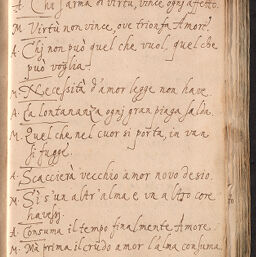 A. Chi s'arma di virtù, vince ogni affetto.
M. Virtù non vince, ove trionfa Amore.
A. Chi non può quel che vuol, quel che
può voglia.
M. Necessità d'amor legge non have
A. La lontananza ogni gran piaga salda.
M. Quel che nel cuor si porta, in van
si fugge.
A. Scaccierà vecchio amor novo desio.
M. Sì s'un altr'alma, e un altro core
havessi.
A. Consuma il tempo finalmente Amore.
M. Mà prima il crudo amor l'alma consuma